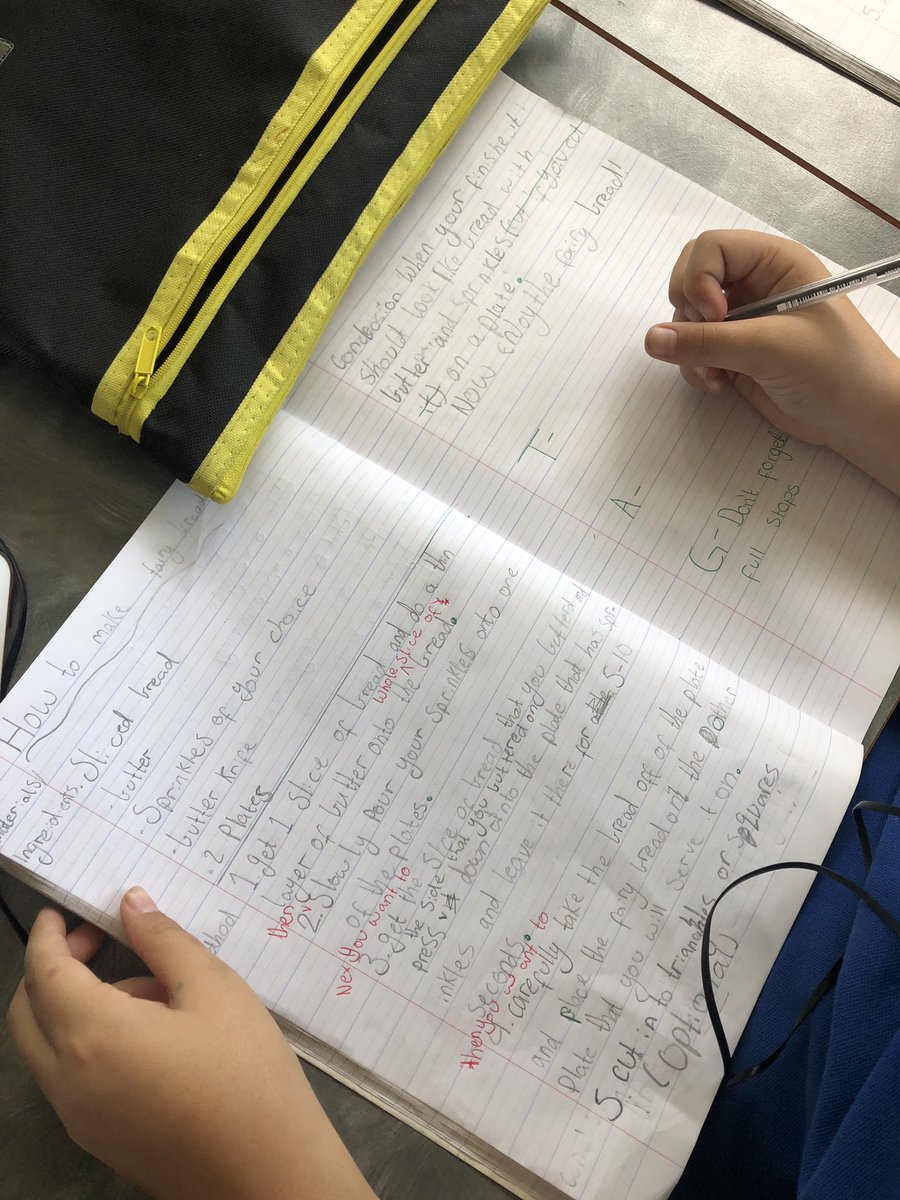 How to make fairy bread
Materials/
Ingredients. Sliced bread
• butter
• Sprinkles of your choice
• butter knife
• 2 plates
Method 1. get 1 slice of bread and do a thin
layer of butter onto the whole slice of bread.
then 2. Slowly pour your sprinkles onto one
of the plates.
Next you want to 3. get the slice of bread that
press the side that you buttered on
down onto the plate that has spr-
inkles and leave it there for 5-10
seconds.
then you want to 4. carefully take the bread off of the plate
and place the fairy bread on the other
plate that you will serve it on.
5. cut in to triangles or squares
(Optional)
Conclosion When your finishe it
should look like bread with
butter and sprinkles (cut if you cut
it) on a plate.
NOW enjoy the fairy bread!!
T-
A-
G- Don't forget
full stops